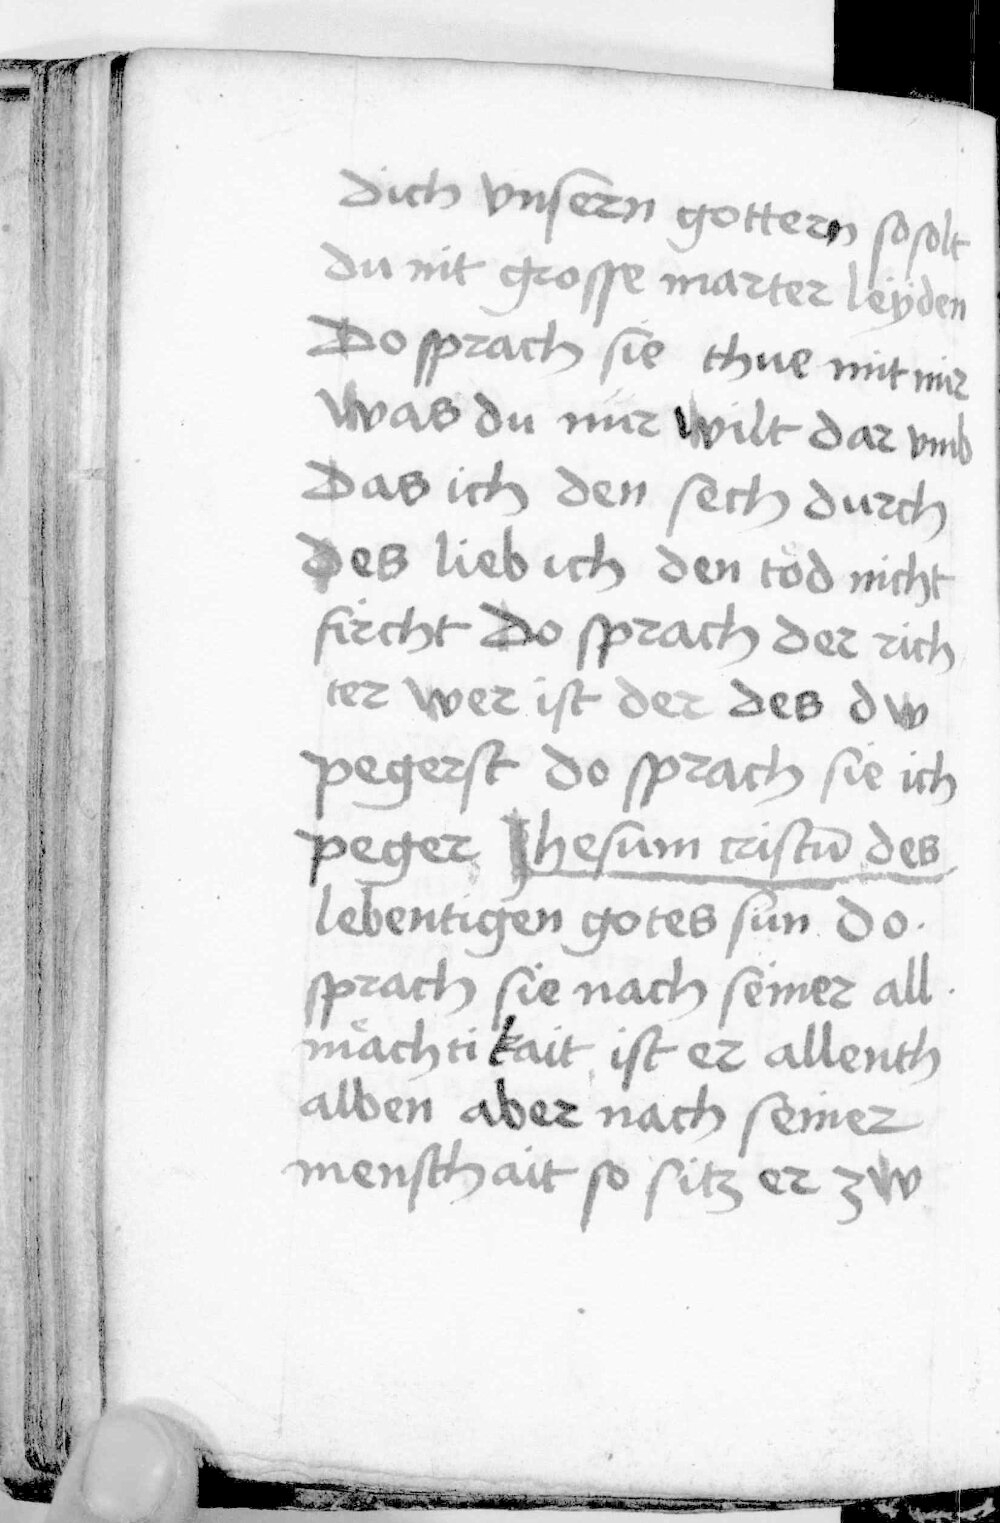 dich vnsern gottern so solt
du nit grosse marter leÿden
Do sprach sie thue mit mir
was du nur wilt dar vmb
Das ich den sech durch
des lieb ich den tod nicht
fircht Do sprach der rich
ter wer ist der des dw
pegerst do sprach sie ich
peger Jhesum cristū des
lebentigen gotes sun do.
sprach sie nach seiner all
maͤchtikait ist er allenth
alben aber nach seiner
menschait so sitz er zw